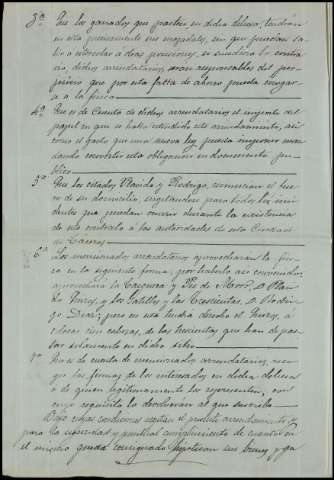 3ª Que los ganados que pasten en dicha dehesa, tendrán
en ella precisamente sus majadales, sin que puedan sa-
lir a dormir a otras posesiones, si sucediera lo contra-
rio, dichos arrendatarios serán responsables del per-
juicio que por esta falta de abono pueda irrogar-
se a la finca
4ª Que es de cuenta de dichos arrendatarios el importe del
papel en que se halla extendido este arrendamiento, así
como el gasto que una nueva ley pueda imponer man-
dando convertir esta obligación en documento pú-
blico
5ª Que los citados Plácido y Rodrigo, renuncian el fue-
ro de su domicilio, sugetándose para todos los inci-
dentes que puedan ocurrir durante la existencia
de este contrato a las autoridades de esta Ciudad
de Cáceres
6ª Los mencionados arrendatarios aprovecharán la fin-
ca en la siguiente forma, por haberlo así convenido;
aprovechará la y de D. Pláci-
do y los y las D. Rodri-
go pero en esta tendrá derecho el a
colocar cien cabezas, de las que han de pas-
tar solamente en dicho sitio
7ª Que es de cuenta de enumerados arrendatarios, reco-
ger las firmas de los interesados en dicha dehesa
o de quien legítimamente les represente, con
cuyo requisito lo devolverán al que suscribe
Bajo estas condiciones el presente arrendamiento y
para la seguridad y puntual cumplimiento de cuanto en
el mismo queda consignado hipotecan sus bienes, y ga